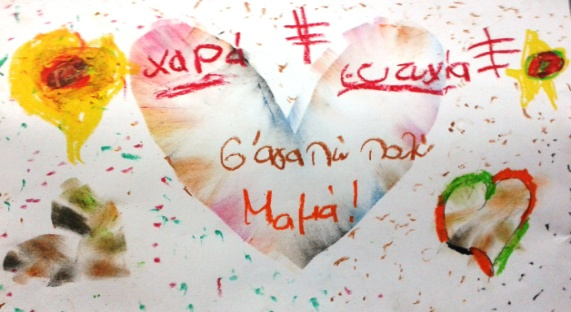 χαρά ευτυχία
σ'αγαπώ πολύ
Μαμά!